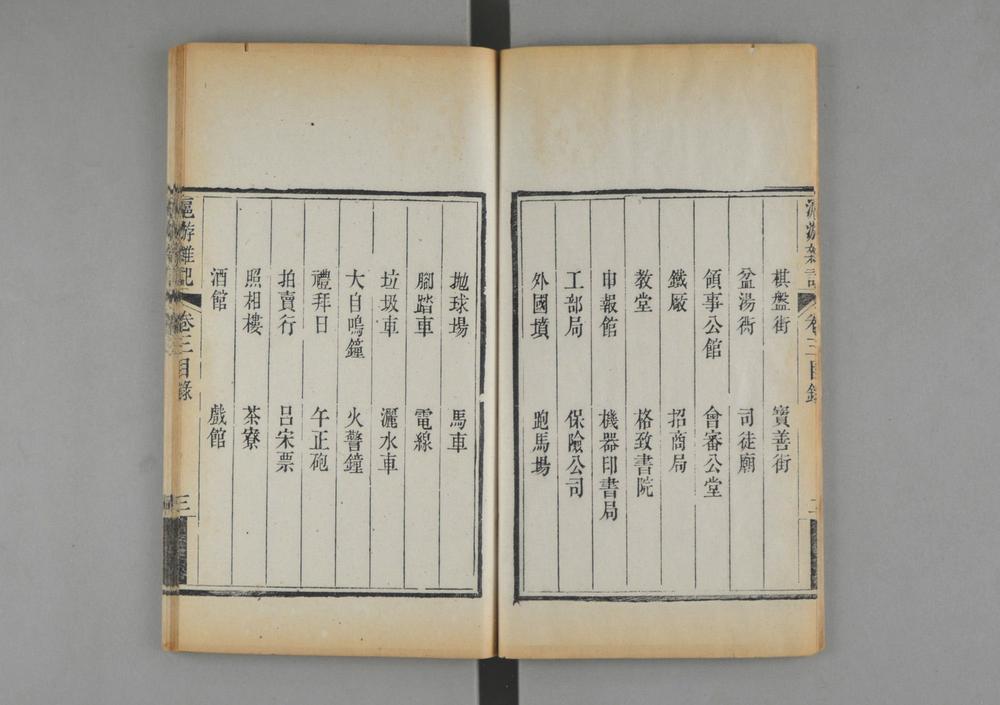 棋盤街 寳善街
盆湯衖 司徒廟
領事公館 會審公堂
鐵厰 招商局
教堂 格致書院
申報館 機器印書局
工部局 保險公司
外國墳 跑馬場
地球場 馬車
腳踏車 電線
垃圾車 灑水車
大自鳴鐘 火警鐘
禮拜日 午正砲
拍賣行 呂宋票
照相樓 茶寮
酒館 戲館
滬游雜記 卷三目錄 三